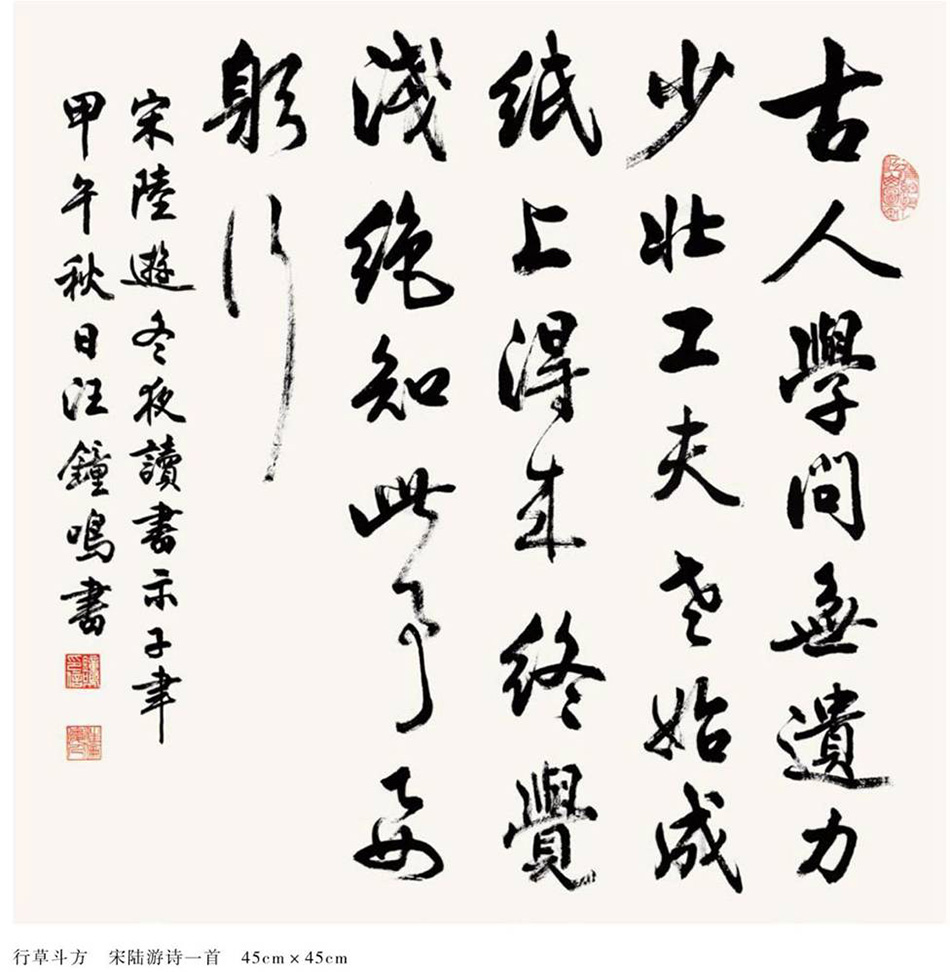 古人學問無遺力
少壯工夫老始成
紙上得来終覺
淺絶知此事要
躬行
宋陸遊冬夜讀書示子聿
甲午秋日汪鐘鳴書
行草斗方 宋陆游诗一首 45cm×45cm